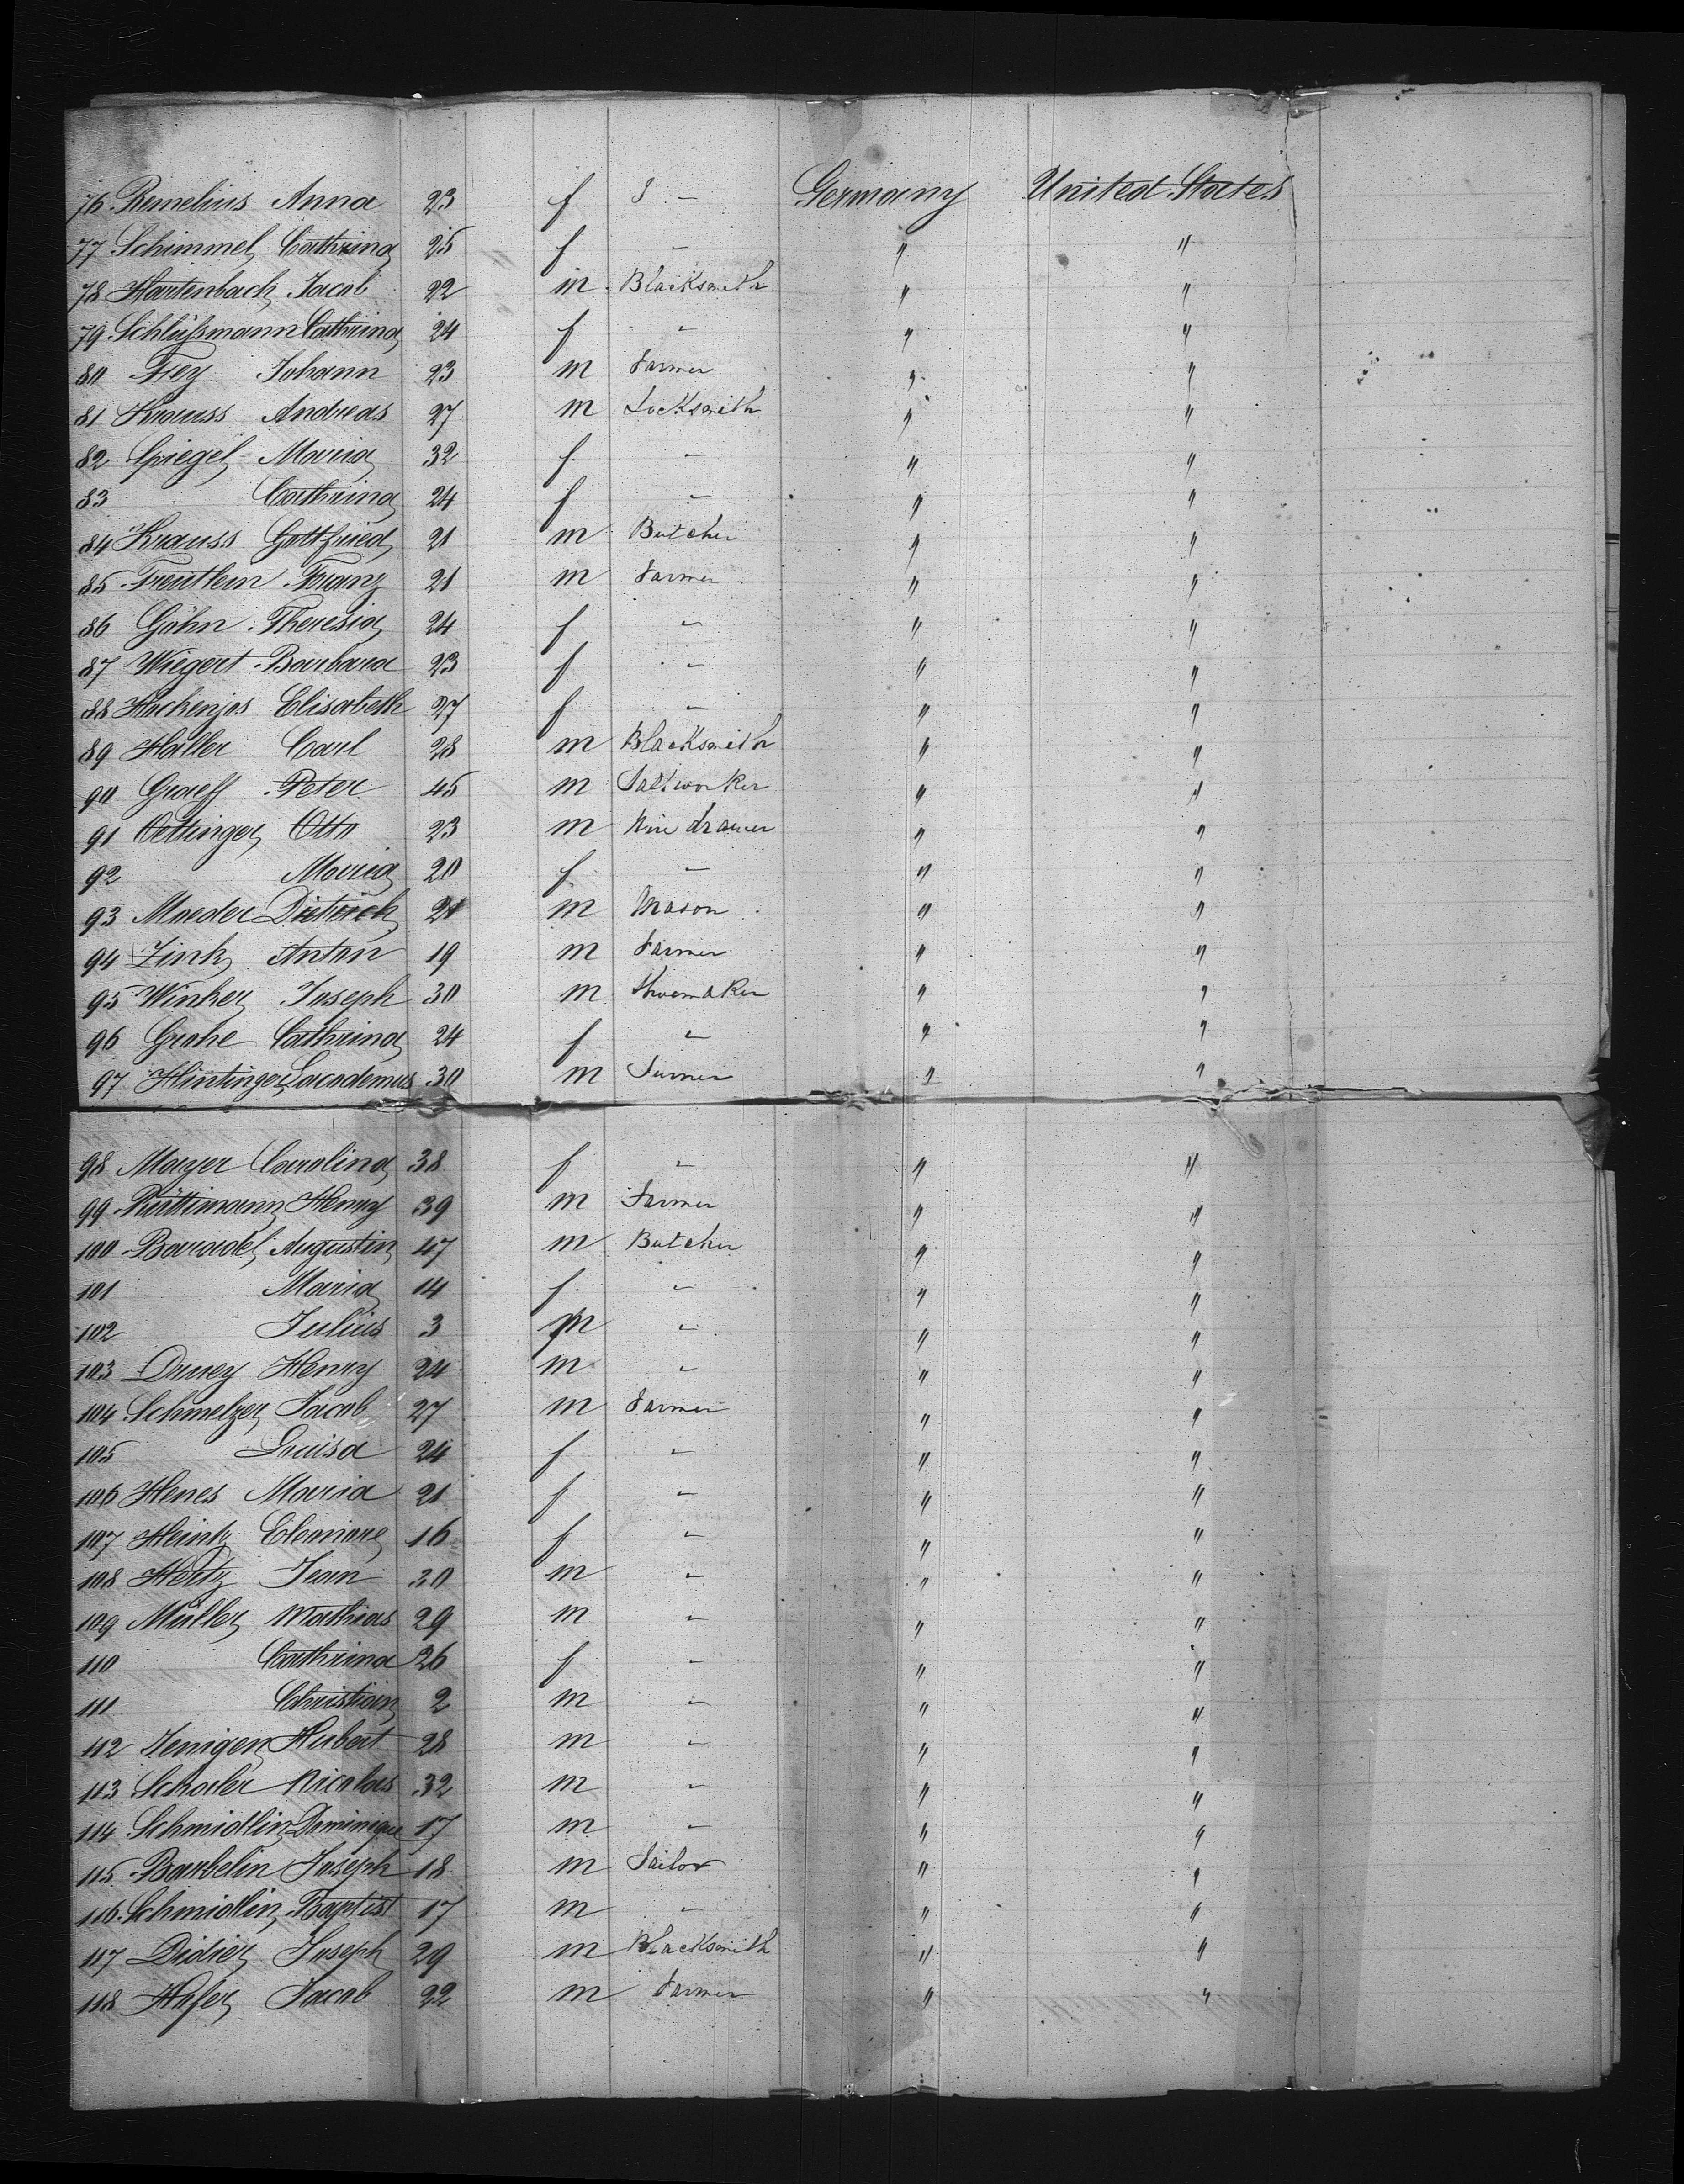 76 Remelius Anna 23 f - Germany United States
77 Schimmel Cathrina 25 f - " "
78 Hartenbach Jacob 22 m Blacksmith " "
79 Schlüssmann Cathrina 24 f - " "
80 Frey Johann 23 m Farmer " "
81 Krauss Andreas 27 m Locksmith " "
82 Spiegel Maria 32 f - " "
83 Cathrina 24 f - " "
84 Krauss Gottfried 21 m Butcher " "
85 Freutlein Franz 21 m Farmer " "
86 Göhn Theresia 24 f - " "
87 Wiegert Barbara 23 f - " "
88 Hockenjos Elisabeth 27 f - " "
89 Haller Carl 28 m Blacksmith " "
90 Graeff Peter 45 m Saltworker " "
91 Oettinger Otto 23 m Wire drawer " "
92 Maria 20 f - " "
93 Maeder Dietrich 21 m Mason " "
94 Zink Anton 19 m Farmer " "
95 Winker Joseph 30 m Shoemaker " "
96 Grohe Cathrina 24 f - " "
97 Hintinger 30 m Turner " "
98 Mayer Carolina 38 f - " "
99 Rüttimann Henry 39 m Farmer " "
100 Baradel Augustin 47 m Butcher " "
101 Maria 14 f - " "
102 Julius 3 m - " "
103 Druey Henry 24 m - " "
104 Schmelzer Jacob 27 m Farmer " "
105 Louisa 24 f - " "
106 Henes Maria 21 f - " "
107 Heintz Eleonore 16 f - " "
108 Heltz Jean 30 m - " "
109 Müller Mathias 29 m - " "
110 Cathrina 26 f - " "
111 Christian 2 m - " "
112 Jenigen Hubert 28 m - " "
113 Schaler Nicolas 32 m - " "
114 Schmidlin Dominique 17 m - " "
115 Barbelin Joseph 18 m Tailor " "
116 Schmidlin Baptist 17 m - " "
117 Didier Joseph 29 m Blacksmith " "
118 Hofer Jacob 22 m Farmer " "